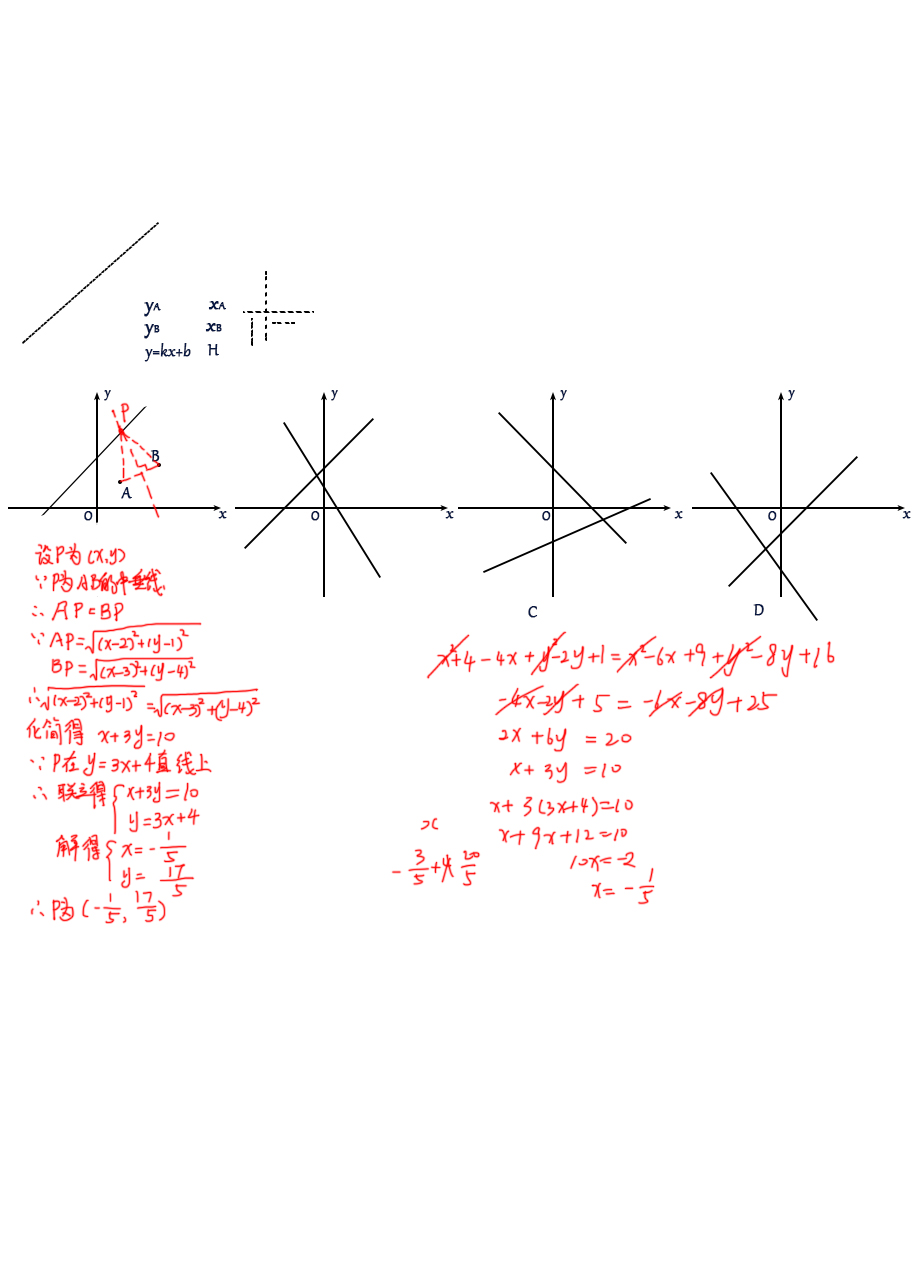 yA xA
yB xB
y=kx+b H
y y y y
P
B
A
O x O x O x O x
C D
设P为(x,y)
∵P为AB的中垂线
∴AP=BP
∵AP=√(x-2)²+(y-1)²
BP=√(x-3)²+(y-4)²
∴√(x-2)²+(y-1)²=√(x-3)²+(y-4)²
化简得 x+3y=10
∵P在y=3x+4直线上
∴联立得{x+3y=10
y=3x+4
解得{x=-1/5
y=17/5
∴P为(-1/5,17/5)
x²+4-4x+y²-2y+1=x²-6x+9+y²-8y+16
-4x-2y+5=-6x-8y+25
2x+6y=20
x+3y=10
x+3(3x+4)=10
x+9x+12=10
10x=-2
x=-1/5
x
-3/5+4 20/5